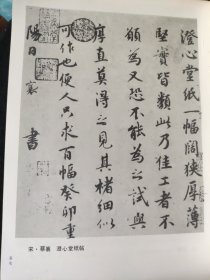 澄心堂紙一幅闊狹厚薄
堅實皆類此乃佳工者不
願為又恐不能為之試與
厚直莫得之見其楮細似
可作也便人只求百幅癸卯重
陽日 襄 書
宋·蔡襄 澄心堂紙帖